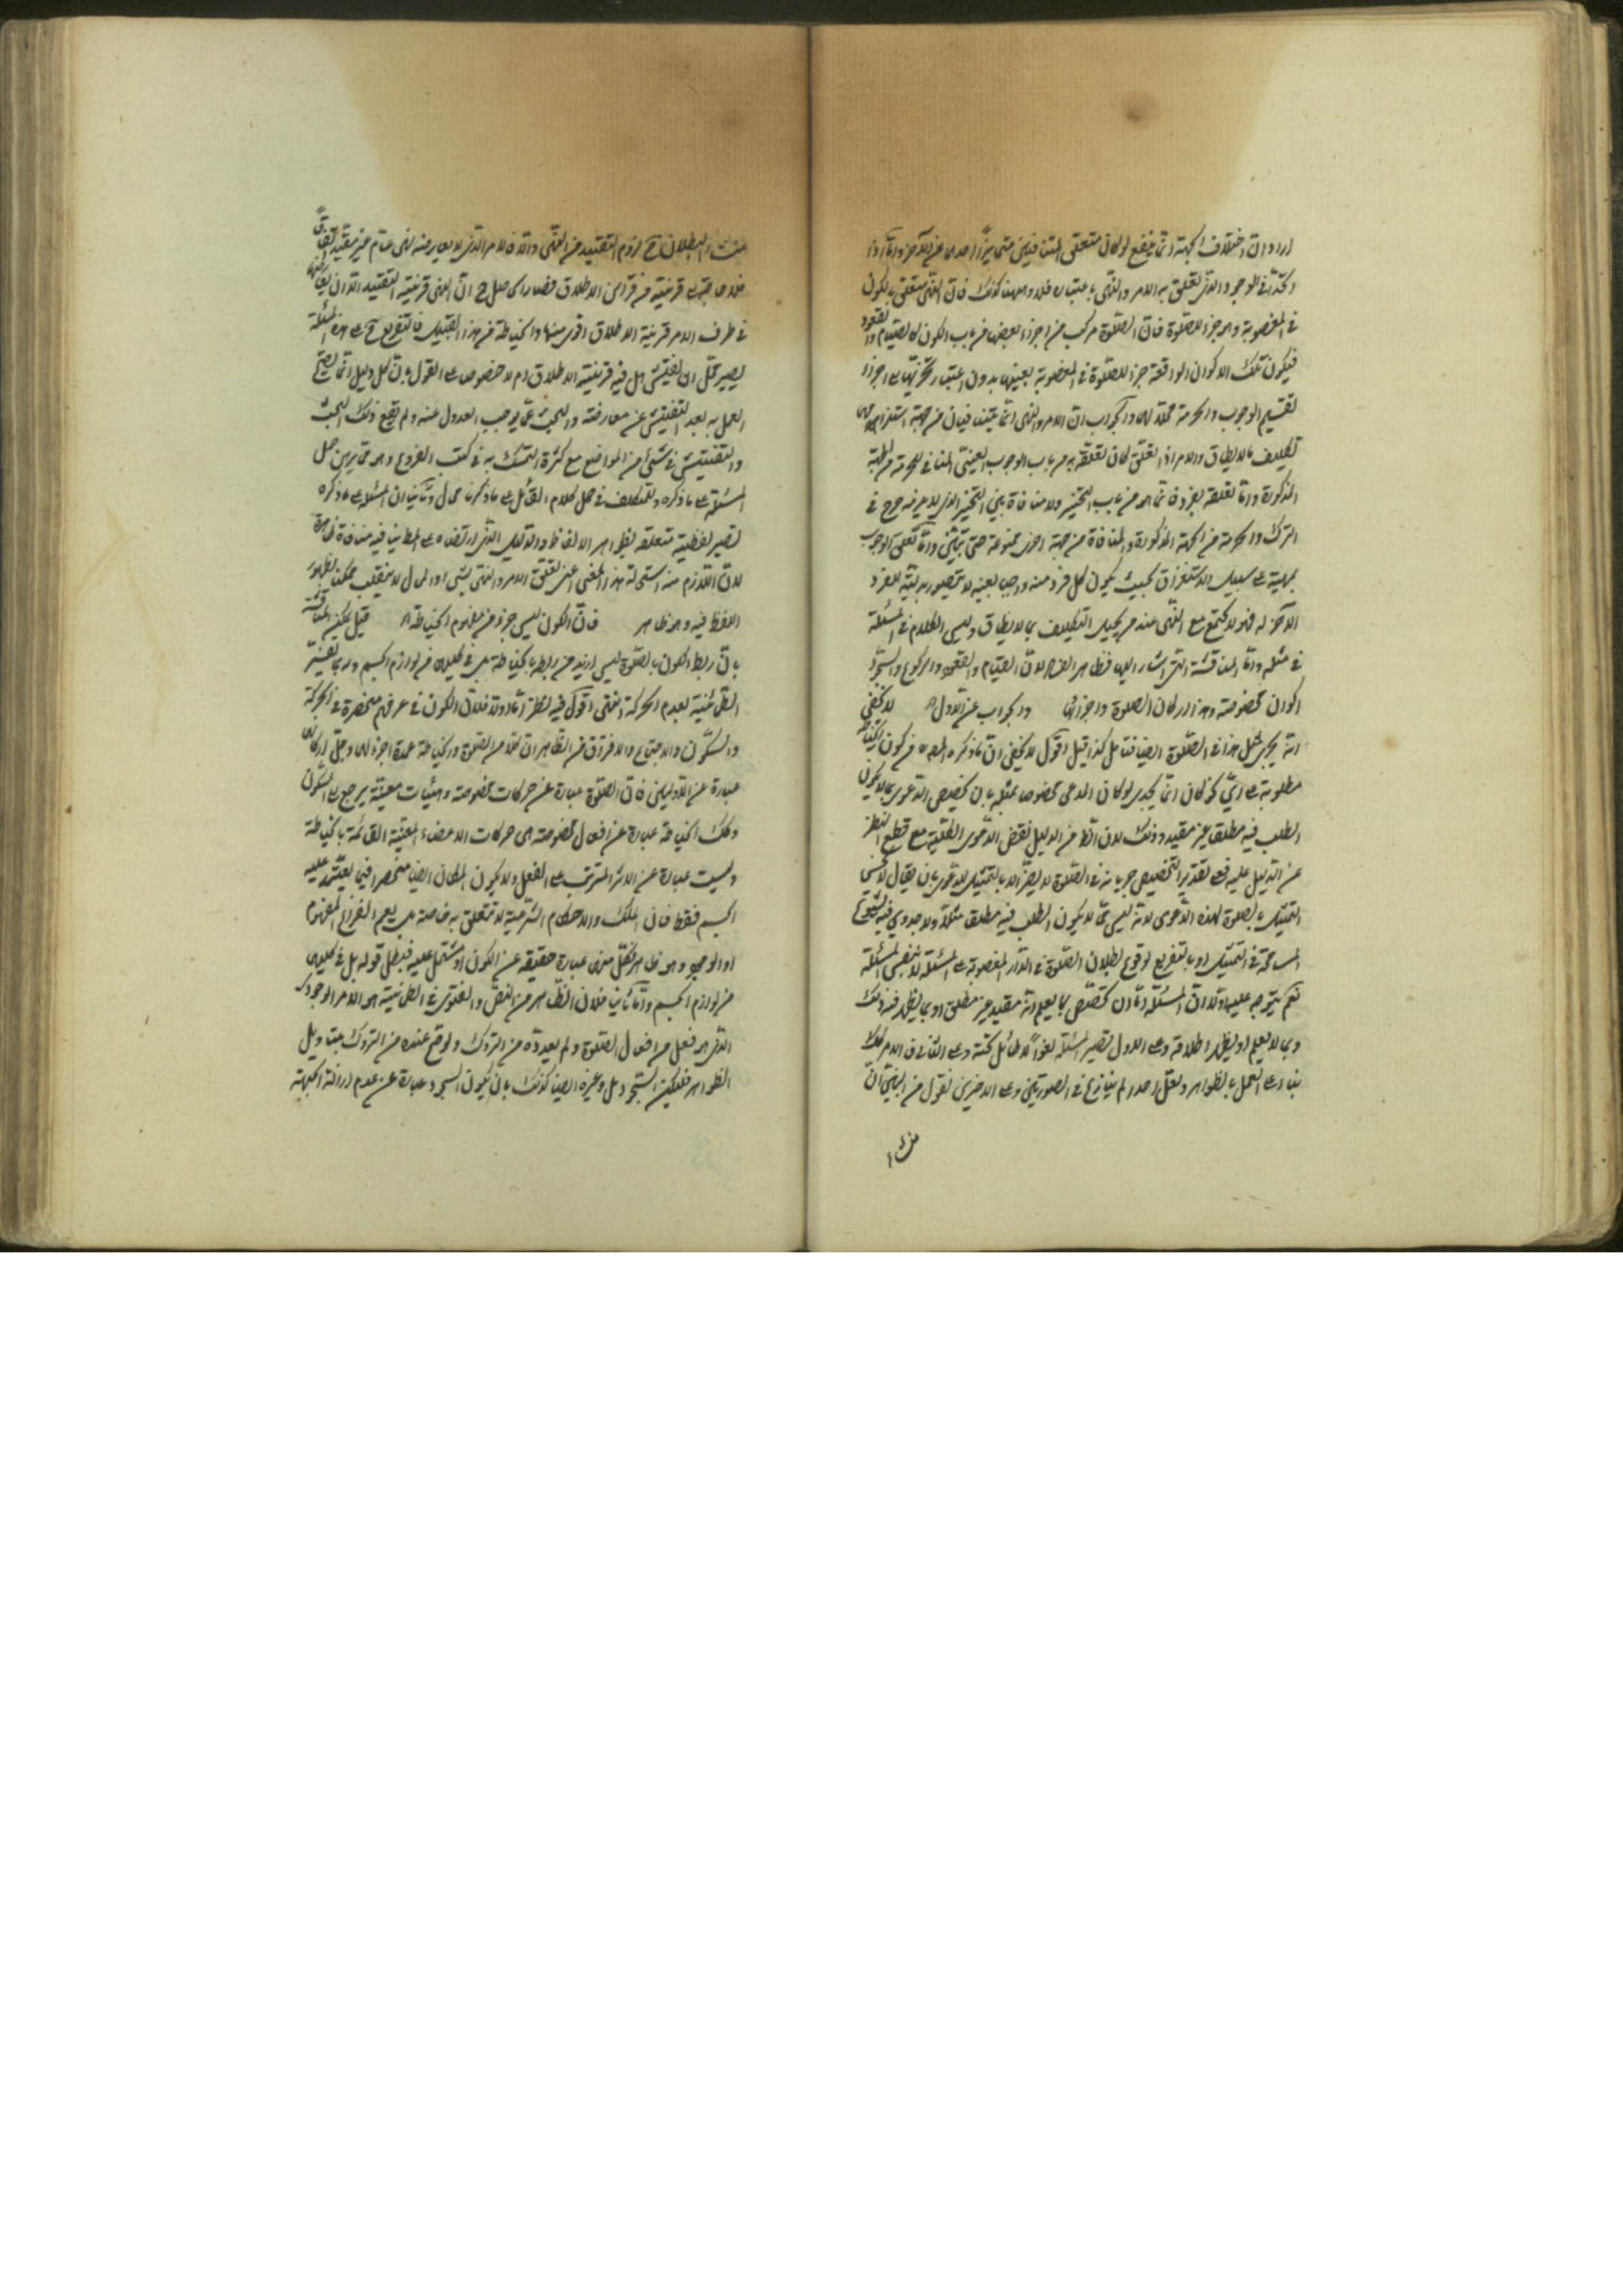 اراد ان اختلاف الجهة انما ينفع لو كان متعلقى المتنافيين متمايزا احدهما عن الآخر واما اذا
اتحدا فى الوجود الذى تعلق به الامر والنهى باعتباره فلا وههنا كذلك فان النهى متعلق بالكون
فى المغصوبة وهو جزء للصلوة فان الصلوة مركب من اجزاء بعضها من باب الكون كالقيام والقعود
فيكون تلك الاكوان الواقعة جزء للصلوة فى المغصوبة بعينها بدون اعتبار
لتقسيم الوجوب والحرمة محلا لهما والجواب ان الامر والنهى انما يتنافيان من جهة استلزامهما
تكليف ما لا يطاق والامر اذا تعلق كان تعلقه به من باب الوجوب العينى المنافى للحرمة من الجهة
المذكورة واما تعلقه بفرد فانما هو من باب التخيير ولا منافاة بين التخيير الذى لا حرج فى
الترك والحرمة من الجهة المذكورة والمنافاة من جهة اخرى ممنوعة حتى يتبين واما تعلق الوجوب
بمهية على سبيل الاستغراق بحيث يكون كل فرد منه واجبا بعينه لا يتصور بدلية للفرد
الآخر له فهو لا يجتمع مع النهى عند من يحيل التكليف بما لا يطاق وليس الكلام فى المسئلة
فى مثله واما المناقشة التى اشار اليها فظاهر الفساد لان القيام والقعود والركوع والسجود
اكوان مخصوصة وهذا اركان الصلوة واجزائها والجواب عن الاول لا يخفى
انه يجرى مثل هذا فى الصلوة ايضا فتامل كذا قيل اقول لا يخفى ان ما ذكره المص من كون الخياطة
مطلوبة على اى نحو كان انما يجدى لو كان المدعى مخصوصا بمثله بان يخصص الدعوى بما لا يكون
الطلب فيه مطلقا غير مقيد وذلك لان الظ من الدليل نقض الدعوى الكلية مع قطع النظر
عن الدليل عليه فعلى تقدير التخصيص جريانه فى الصلوة لا يضر الا بالتمسك للدعوى بان يقال لا يحسن
التمسك بالصلوة لهذه الدعوى لانه ليس مما لا يكون الطلب فيه مطلقا مثلا ولا جدوى فيه لشيوع
المسامحة فى التمسك او بالتفريع لوقوع بطلان الصلوة فى الدار المغصوبة على المسئلة لا بنفس المسئلة
نعم يتوجه عليه اولا ان المسئلة اما ان تخصص بما يعلم انه مقيد غير مطلق او بما يظهر فيه ذلك
وبما لا يعلم او يظهر اطلاقه وعلى الاول تصير المسئلة لغوا لا طائل تحته وعلى الثانى فالامر كذلك
بناء على العمل بالظواهر ولعل احدا لم ينازع فى الصورتين وعلى الاخيرين نقول من البين ان
البطلان ح لزوم التقييد من النهى والا فالامر الذى لا يعارضه نهى عام غير مقيد اتفاقا
فلا حاجة الى قرينة من قرائن الاطلاق فصار الحاصل ح ان النهى قرينة التقييد الا ان يعارضها
فى طرف الامر قرينة الاطلاق اقوى منها والخياطة من هذا القبيل فالتفريع ح على هذه المسئلة
يصير محل ان يفتش هل فيه قرينة الاطلاق ام لا خصوصا على القول بان كل دليل انما يصح
العمل به بعد التفتيش عن معارضه والبحث عما يوجب العدول عنه ولم يقع ذلك البحث
والتفتيش فى شئ من المواضع مع كثرة التمسك به فى كتب الفروع وهو مما يوهن حمل
المسئلة على ما ذكره والتكلف فى حمل كلام القائل على ما ذكرنا محال وثانيا ان المسئلة على ما ذكره
تصير لفظية متعلقة بظواهر الالفاظ والدليل الذى ارتضاه على المطانيا فيه منافاة ظاهرة
لان اللازم منه استحالة هذا المعنى اعنى تعلق الامر والنهى بشئ والمحال لا ينقلب ممكنا بظهور
اللفظ فيه وهو ظاهر فان الكون ليس جزء من مفهوم الخياطة قيل يمكن المناقشة
بان ربط الكون بالصلوة ليس ازيد من ربط بالخياطة بل فى كليهما من لوازم الجسم وربما يفسر
الطمأنينة بعدم الحركة انتهى اقول فيه نظر اما اولا فلان الكون فى عرفهم منحصرة فى الحركة
والسكون والاجتماع والافتراق فمن الظاهر ان كلا من الصلوة والخياطة عمدة اجزائهما وجل اركانهما
عبارة عن الاوليين فان الصلوة عبارة عن حركات مخصوصة وهيئات معينة يرجع الى السكون
وكذلك الخياطة عبارة عن افعال مخصوصة هى حركات الاعضاء المعينة القائمة بالخياطة
وليست عبارة عن الاثر المترتب على الفعل ولا يكون المكان ايضا منحصرا فيما يعتمد عليه
الجسم فقط فان الملك والاحكام الشرعية لا تتعلق به خاصة بل يعم الفراغ الموهوم
او الموجود وهو ظاهر فكل منهما عبارة حقيقة عن الكون او مشتمل عليه فبطل قوله بل فى كليهما
من لوازم الجسم واما ثانيا فلان الظاهر من النص والفتوى فى الطمأنينة هو الامر الوجودى
الذى هو فعل من افعال الصلوة ولم يعدوه من التروك ولو قع عنده من التروك بتاويل
الظواهر فليكن السجود بل وغيره ايضا كذلك بان يكون السجود عبارة عن عدم ازالة الجبهة